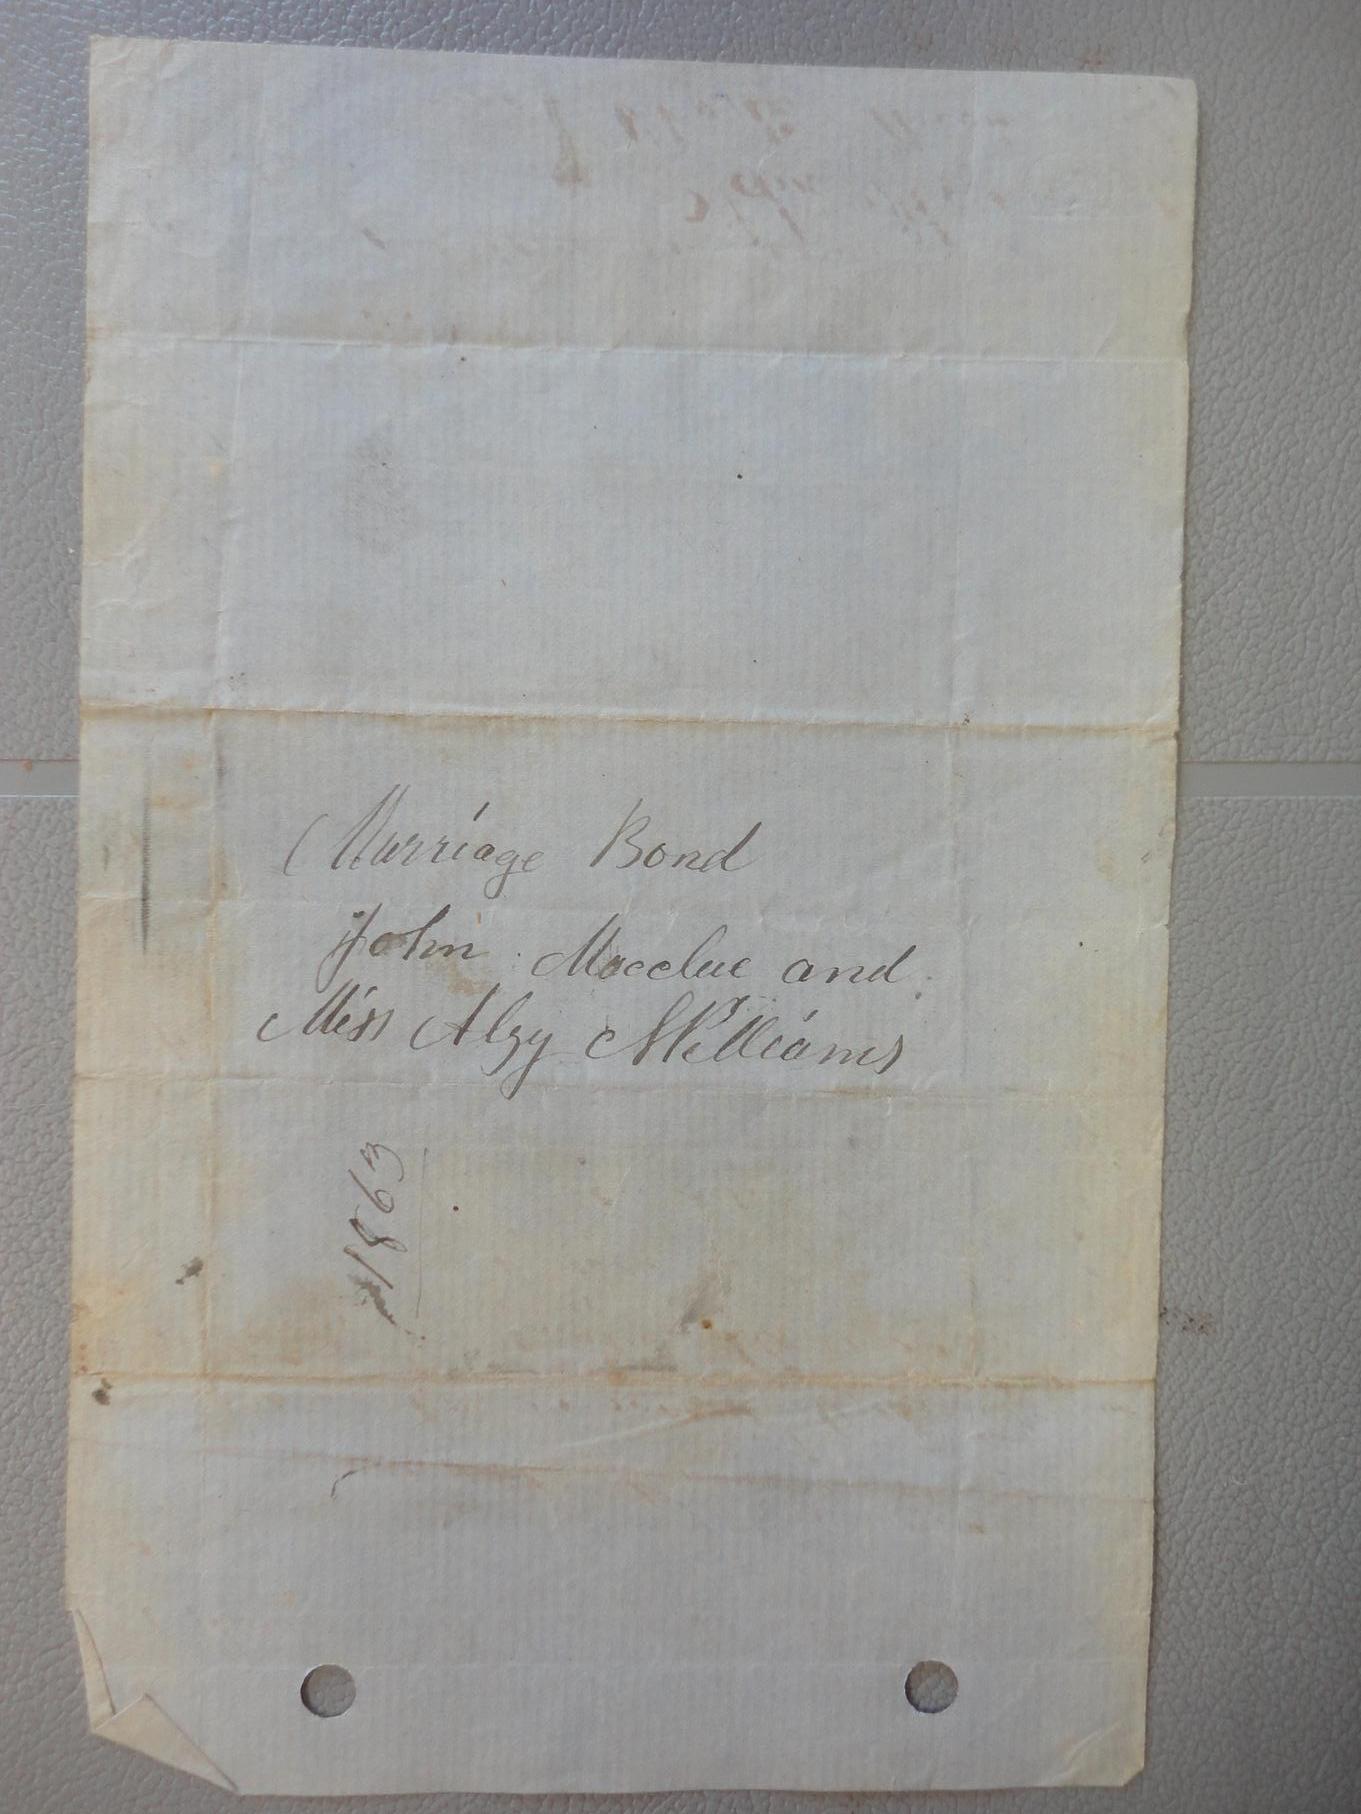 Marriage Bond
John Macclue and
Miss Alzy Williams
1863